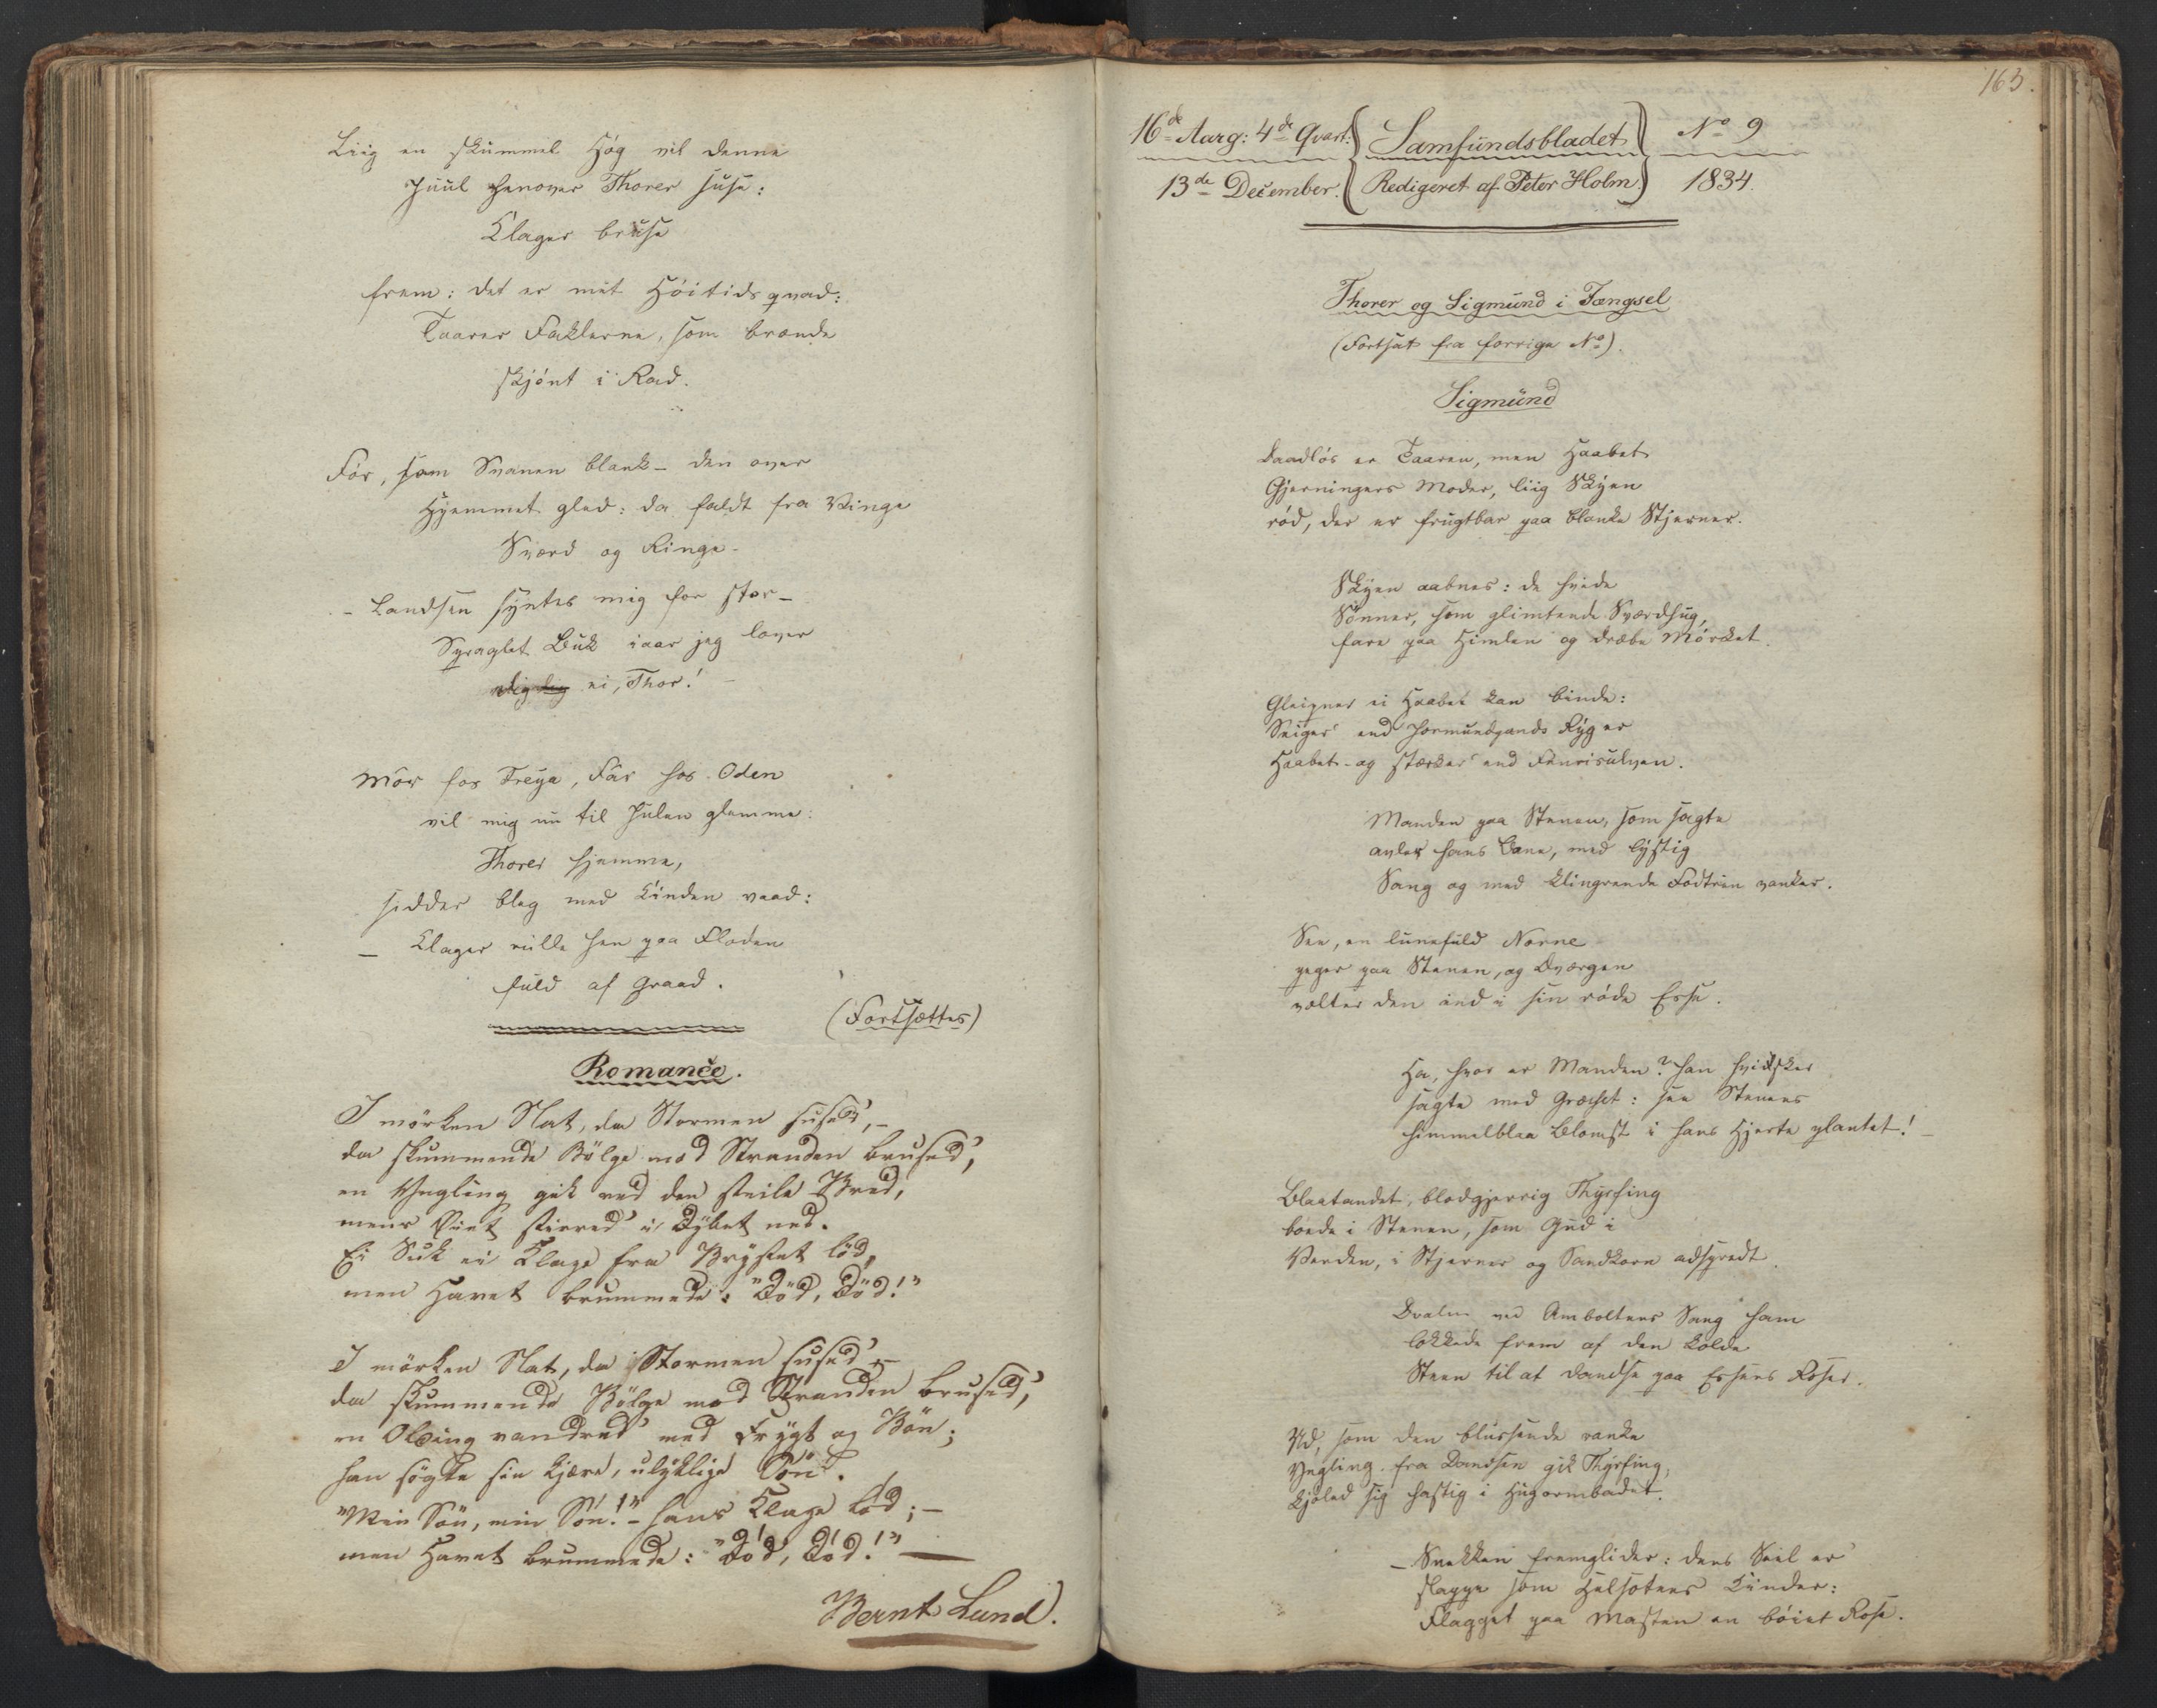 Liig en skummel Høg vil denne
Juul henover Thorer suse:
Klager bruse
frem: det er mit Höitidsqvad:
Taarer Faklerne, som brænde
skjönt i Rad.
För, som Svanen blank – den over
Hjemmet gled: da faldt fra Vinge
Sværd og Ringe.
– Landsen syntes mig for stor –
Spraglet Buk iaar jeg lover
ei, Thor! –
Mör hos Freya, Får hos Oden
vil mig nu til Julen glemme:
Thorer hjemme,
sidder bleg med Kinden vaad:
– Klager rulle hen paa Floden
fuld af Graad.
(Fortsættes)
Romance.
I mörken Nat, da Stormen sused', –
da skummende Bölge mod Stranden brused',
en Yngling gik ved den steile Bred,
mens Öiet stirred' i Dybet ned.
Ei Suk ei Klage fra Brystet löd,
men Havet brummede: "Död, Död!"
I mörken Nat, da Stormen sused' –
da skummende Bölge mod Stranden brused',
en Olding vandred' med Frygt og Bön;
han sögte sin kjære, ulyklige Sön.
"Min Sön, min Sön!" – hans Klage löd; –
men Havet brummede: "Död, Död!" –
Bernt Lund.
163.
16de Aarg: 4de Qvart: Samfundsbladet No 9
13de December. Redigeret af Peter Holm. 1834.
Thorer og Sigmund i Fængsel
(Fortsat fra forrige No).
Sigmund
Daadlös er Taaren, men Haabet
Gjerningers Moder, liig Skyen
röd, der er frugtbar paa blanke Stjerner.
Skyen aabnes: de hvide
Sönner, som glimtende Sværdhug,
fare paa Himlen og dræbe Mörket.
Gleipner ei Haabet kan binde:
Seiger' end Jormundgands Ryg er
Haabet – og stærker' end Fenrisulven.
Manden paa Stenen, som sagte
avler hans Bane, med lystig
Sang og med klingrende Fodtrin vanker.
See, en lunefuld Norne
peger paa Stenen, og Dværgen
vælter den ind i sin röde Esse.
Ha, hvor er Manden? han hvidsker
sagte med Græsset: see Stenens
himmelblaa Blomst i hans Hjerte plantet! –
Blaatandet, blodgjerrig Thyrsing
boede i Stenen, som Gud i
Verden, i Stjerner og Sandkorn adspredt.
Dvalin ved Amboltens Sang ham
lokkede frem af den kolde
Steen til at dandse paa Essens Roser.
Ud, som den blussende ranke
Yngling fra Dandsen gik Thyrsing,
kjöled sig hastig i Hugormbadet.
– Snekken fremglider: dens Seil er
slappe som Helsotens Kinder:
Flagget paa Masten en böiet Rose.